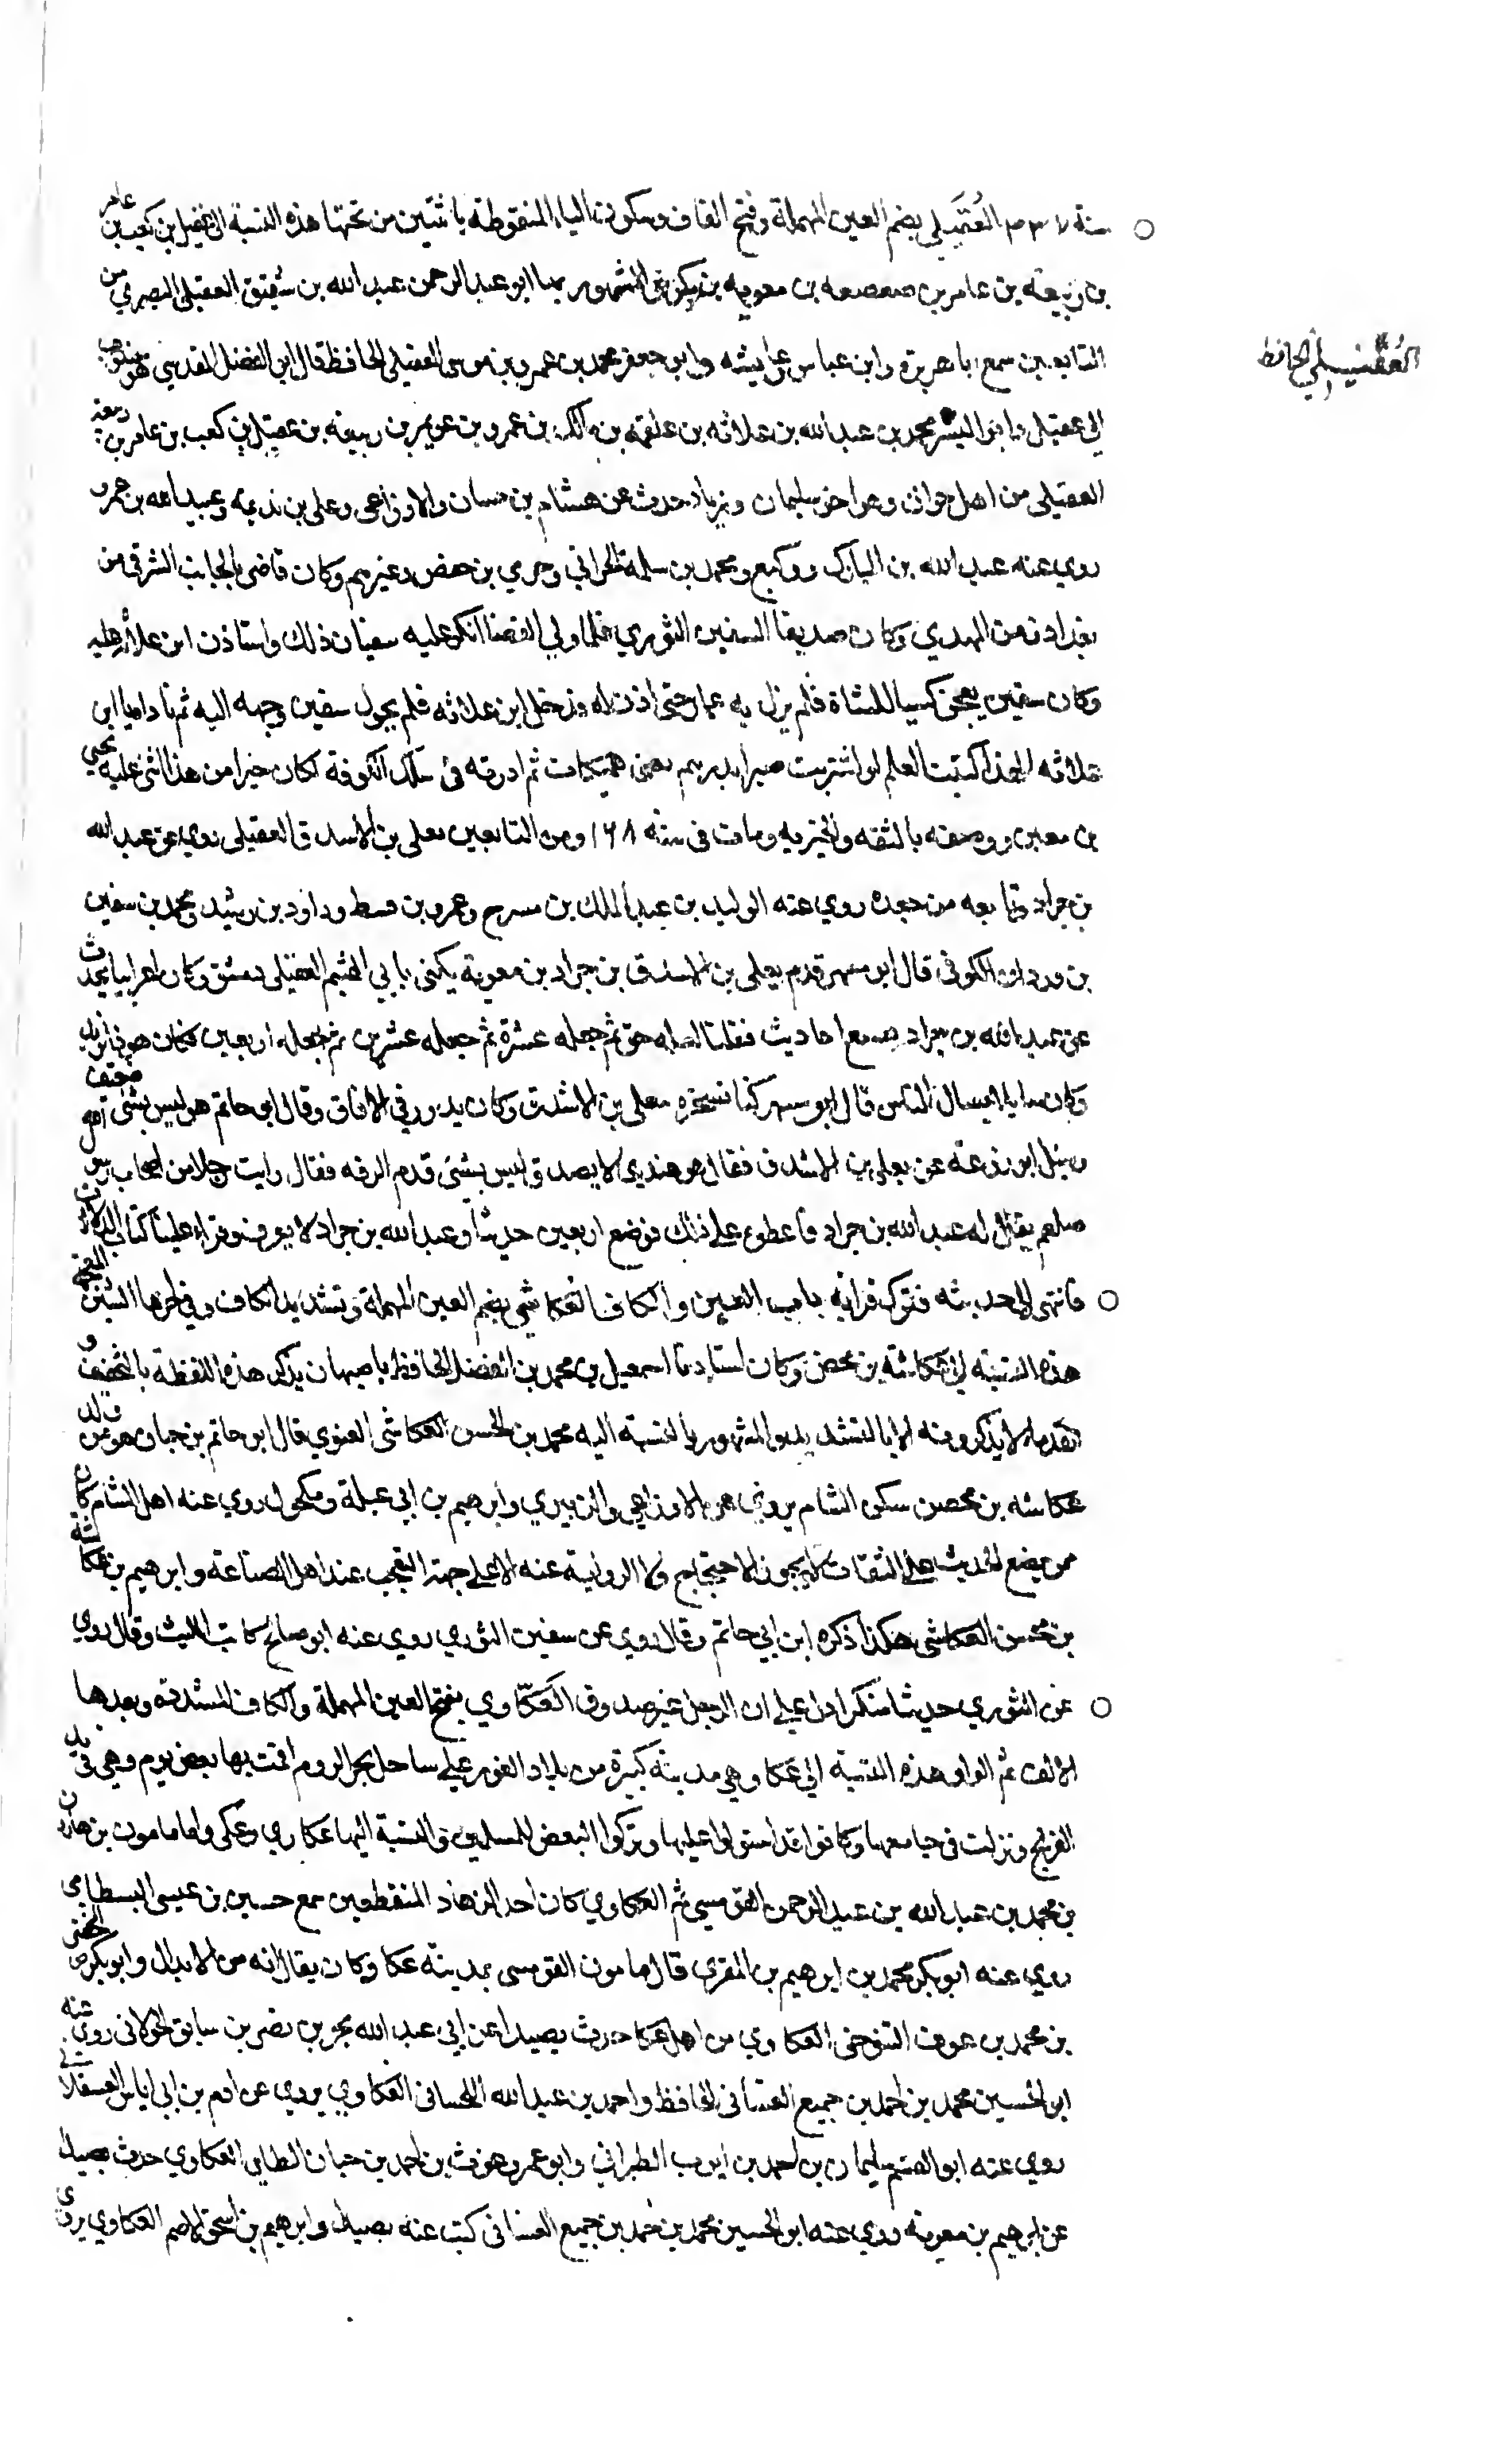 سنة ٣٣٧ العُقَيلي بضم العين المهملة وفتح القاف وسكون الياء المنقوطة باثنتين من تحتها هذه النسبة الى عقيل بن كعب بن عامر
بن ربيعة بن عامر بن صعصعه بن معويه بن بكر المشهور بها ابو عبد الرحمن عبد الله بن شقيق العقيلي البصري من
التابعين سمع ابا هريرة وابن عباس وعايشه وابو جعفر محمد بن عمرو بن موسى العقيلي الحافظ قال ابو الفضل المقدسي هو منسوب
العُقَيلي الحافظ
الى عقيل وابو اليسر محمد بن عبد الله بن علاثه بن علقمه بن مالك بن عمرو بن عويمر بن ربيعه بن عقيل بن كعب بن عامر بن ربيعه
العقيلي من اهل حران وهو اخو سليمان وزياد حدث عن هشام بن حسان والاوزاعي وعلي بن بذيمه وعبيد الله بن عمر
روي عنه عبد الله بن المبارك ووكيع ومحمد بن سلمة الحراني وحرمي بن حفص وغيرهم وكان قاضي بالجانب الشرقي من
بغداد زمن المهدي وكان صديقا لسفين الثوري فلما ولي القضا انكر عليه سفيان ذلك واستاذن ابن علاثه عليه
وكان سفين يعجن كسبا للشاة فلم يزل به عمار حتى اذن له فدخل ابن علاثه فلم يحول سفين وجهه اليه ثم ناداه يا ابن
علاثه الهذا كتبت العلم لو اشتريت صيرا بدرهم يعني سميكات ثم ادرته في سكك الكوفة لكان خيرا من هذا اثنى عليه يحيي
بن معين ووصفه بالثقه والخيريه ومات في سنه ١٦٨ ومن التابعين يعلى بن الاشدق العقيلي روي عن عبد الله
بن جراد ونابعه من جعده روي عنه الوليد بن عبد الملك بن مسرح وعمرو بن قسط وداود بن رشيد ومحمد بن سفين
بن وردان الكوفي قال ابو مسهر قدم يعلى بن الاشدق بن جراد بن معوية يكنى بابي الهيثم العقيلي دمشق وكان اعرابيا يحدث
عن عبد الله بن جراد بسبع احاديث فقلنا لعله حق ثم جعله عشرة ثم جعله عشرين ثم جعله اربعين فكان هوذا يزيد
وكان سايلا يسال الناس قال ابو مسهر كنا نسخر من يعلى بن الاشدق وكان يدور في الافاق وقال ابو حاتم هو ليس بشئ ضعيف
وسئل ابو زرعة عن يعلى بن الاشدق فقال هو عندي لا يصدق ليس بشئ قدم الرقه فقال رايت رجلا من اصحاب رسول
صلعم يقال له عبد الله بن جراد فاعطوه على ذلك فوضع اربعين حديثا وعبد الله بن جراد لا يعرف وقراء علينا كتاب
فانتهى الى حديثه فترك قراته باب العين والكاف العُكاشي بضم العين المهملة وتشديد الكاف وفي اخرها الشين المعجمه
هذه النسبة الى عكاشة بن محصن وكان استاذنا اسمعيل بن محمد بن الفضل الحافظ باصبهان يذكر هذه اللفظة بالتخفيف و
القدماء لا يذكرونه الا بالتشديد والمشهور بالنسبة اليه محمد بن الحسن العكاشي الغنوي قال ابو حاتم بن حبان هو من ولد
عكاشه بن محصن سكن الشام يروي عن الاوزاعي والزبيري وابرهيم بن ابي عبلة ومكحول روي عنه اهل الشام كان
ممن يضع الحديث على الثقات لا يجوز الاحتجاج ولا الرواية عنه الا على جهة التعجب عند اهل الصناعة وابرهيم بن عكاشه
بن محصن العكاشي هكذا ذكره ابن ابي حاتم وقال روي عن سفين الثوري روي عنه ابو صالح كاتب الليث وقال روي
عن الثوري حديثا منكرا دل على ان الرجل غير صدوق العَكّاوي بفتح العين المهملة والكاف المشددة وبعدها
الالف ثم الواو هذه النسبة الى عكا وهي مدينة كبيرة من بلاد الغور على ساحل بحر الروم اقمت بها بعض يوم وهي في يد
الفرنج ونزلت في جامعها وكانوا قد استولوا عليها وتركوا البعض للمسلمين والنسبة اليها عكاوي وعكي واما مامون بن هارون
بن محمد بن عبد الله بن عبد الرحمن القومسي ثم العكاوي كان احد الزهاد المنقطعين سمع حسين بن عيسى البسطامي
روي عنه ابو بكر محمد بن ابرهيم بن المقري قال مامون القومسي بمدينة عكا وكان يقال انه من الابدال وابو بكر
بن محمد بن عوف التنوخي العكاوي من اهل عكا حدث بصيدا عن ابي عبد الله بحر بن نصر بن سابق الخولاني روي عنه
ابو الحسين محمد بن احمد بن جميع الغساني الحافظ واحمد بن عبد الله اللحياني العكاوي يروي عن ادم بن ابي اياس العسقلاني
روي عنه ابو القسم سليمان بن احمد بن ايوب الطبراني وابو عمرو بن احمد بن حبان الطاي العكاوي حدث بصيدا
عن ابرهيم بن معوية روي عنه ابو الحسين محمد بن احمد بن جميع الغساني كتب عنه بصيدا وابرهيم بن اسحق الاصم العكاوي يروي